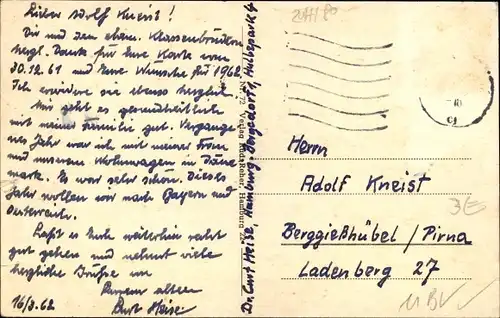 Lieber Adolf Kneist!
Dir und den ehem. Klassenbrüdern
herzl. Dank für Eure Karte vom
30.12.61 und Eure Wünsche für 1962.
Ich erwidere sie ebenso herzlich
Mir geht es gesundheitlich
mit meiner Familie gut. Vergange-
nes Jahr war ich mit meiner Frau
und unserem Wohnwagen in Däne
mark. Es war sehr schön. Dieses
Jahr wollen wir nach Bayern und
Österreich.
Laßt es Euch weiterhin recht
gut gehen und nehmt viele
herzliche Grüße von
Eurem alten
Curt Heise
16/3.62
Dr. Curt Heise, Hamburg-Bergedorf 1, Hulbepark 4
Verlag Rud. Reiher, Hamburg
Herrn
Adolf Kneist
Berggießhübel / Pirna
Ladenberg 27